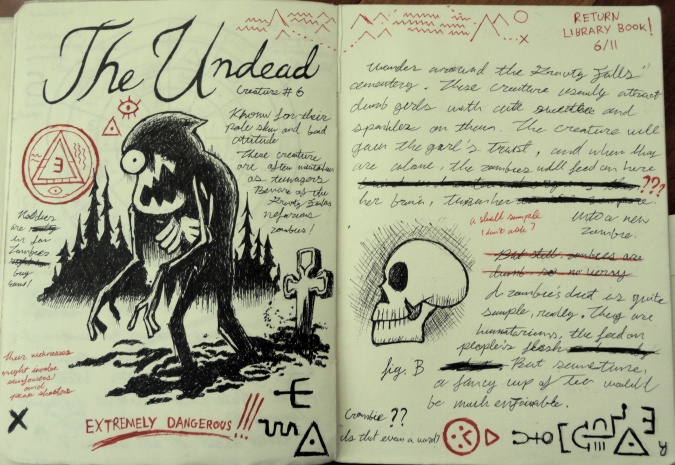 The Undead
Creature # 6
Known for their
pale skin and bad
attitude
These creature
are often mistaken
as teenagers
Beware of the
Gravity Falls
nefarious
zombies!
are
in for
Zombies
buy
Their weaknesses
might involve
sunflowers
and
pea shooters
X
EXTREMELY DANGEROUS!!!
RETURN
LIBRARY BOOK!
6/11
Wander around the Gravity Falls
cemetery. These creature usually attract
dumb girls with cute and
sparkles on them. The creature will
gain the garl's trust, and when they
are alone, the zombies will feed on here
???
her brain,
a skull sample
(don't ask?)
into a new
zombie.
But still, zombies are
dumb so no worry
A zombie's diet is quite
simple, really. They are
the feed on
people's flesh
But sometime,
a fancy cup of tea would
be much enjoyable.
fig. B
Crombie??
is that even a word?